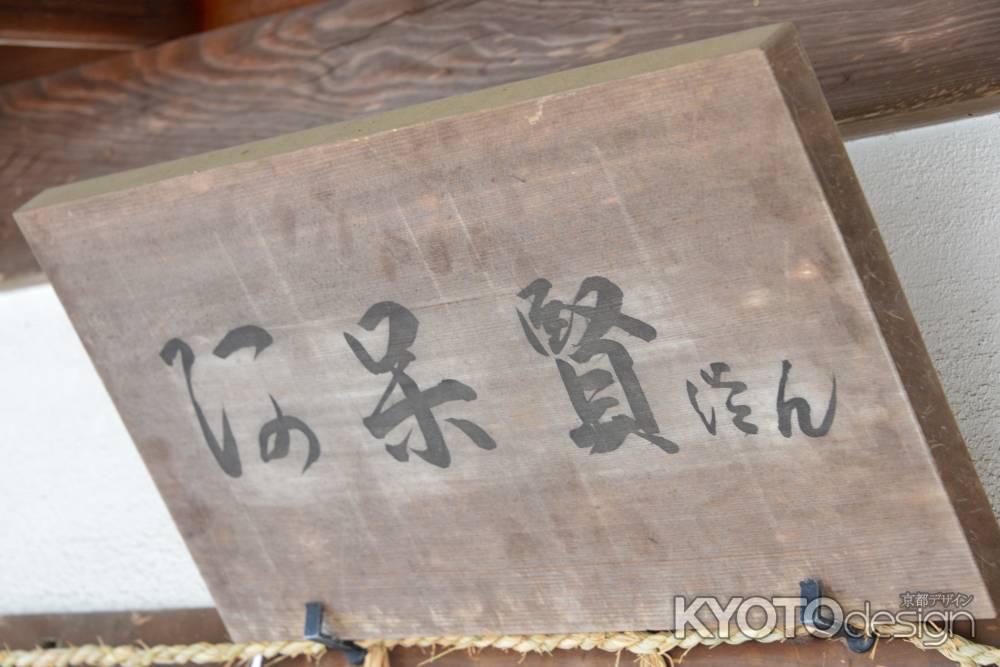 阿呆賢さん
京都デザイン
KYOTOdesign